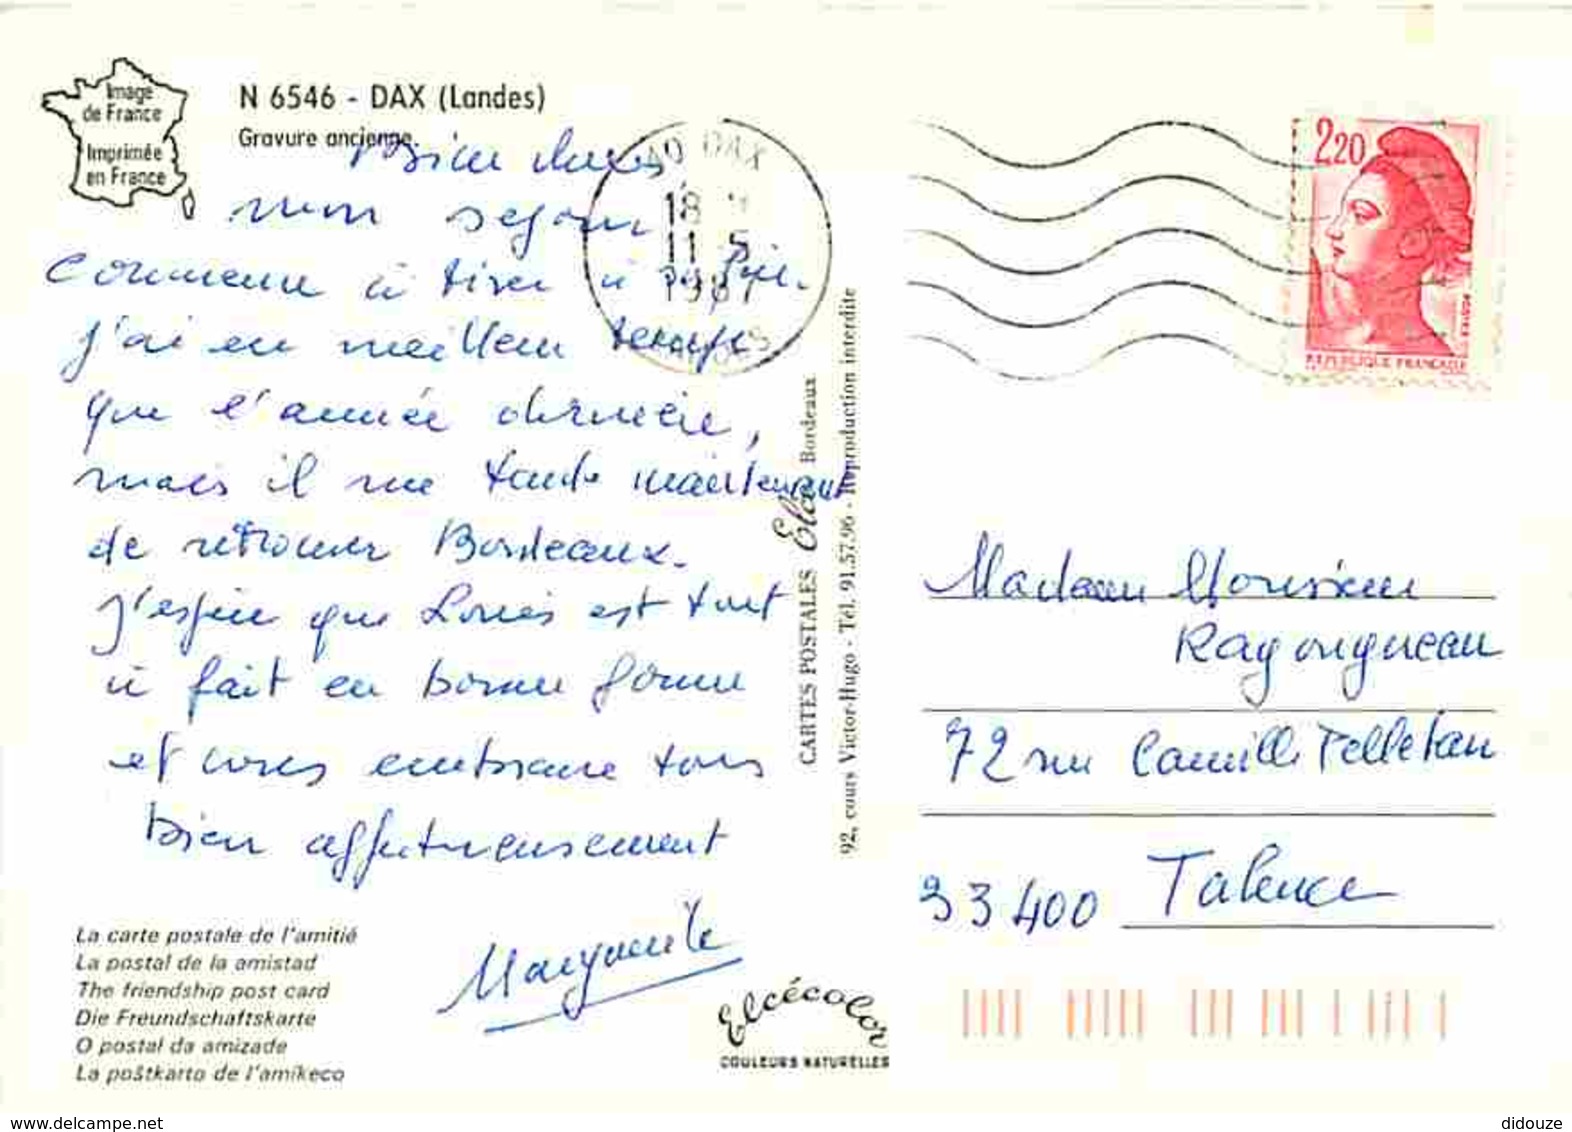 Image
de France
Imprimée
en France
N 6546 - DAX (Landes)
Gravure ancienne.
Bien chers
mon sejour
commence à tirer à sa fin.
J'ai eu meilleur temps
que l'année dernière,
mais il me tarde maintenant
de retrouver Bordeaux.
J'espère que Louis est tout
à fait en bonne forme
et vous embrasse tous
bien affectueusement
Marguerite
La carte postale de l'amitié
La postal de la amistad
The friendship post card
Die Freundschaftskarte
O postal da amizade
La poŝtkarto de l'amikeco
Elcécolor
COULEURS NATURELLES
CARTES POSTALES Elcé Bordeaux
92, cours Victor-Hugo - Tél. 91.57.96 - Reproduction interdite
40 DAX
18 H
11 5
1987
LANDES
2,20
REPUBLIQUE FRANÇAISE
Madame Monsieur
Ragongneau
72 rue Camille Pelletan
33400 Talence
didouze